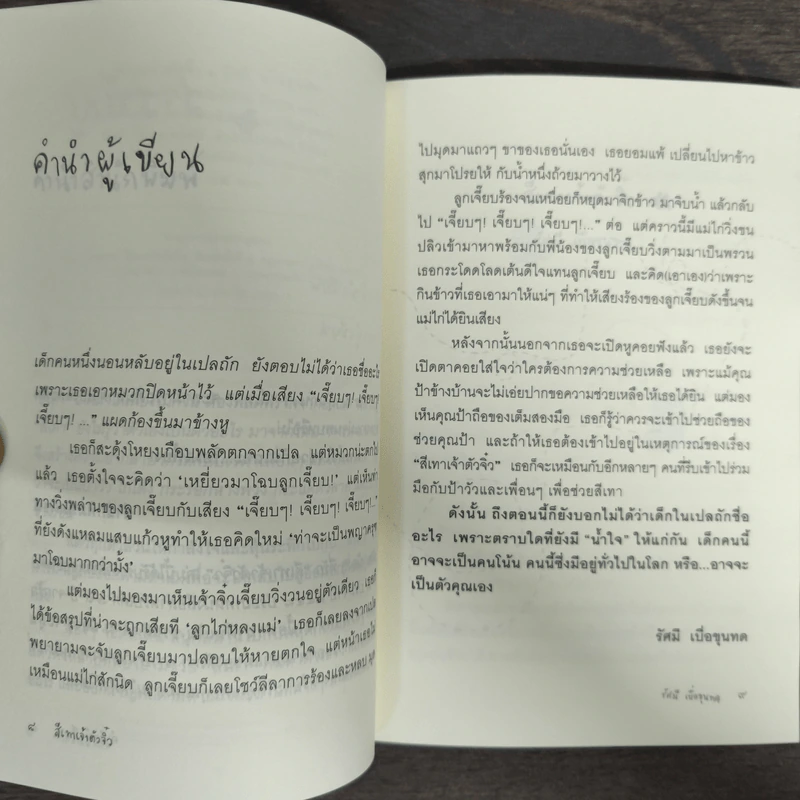 คำนำผู้เขียน
เด็กคนหนึ่งนอนหลับอยู่ในเปลถัก ยังตอบไม่ได้ว่าเธอชื่ออะไร
เพราะเธอเอาหมวกปิดหน้าไว้ แต่เมื่อเสียง “เจี๊ยบๆ! เจี๊ยบๆ!
เจี๊ยบๆ! ...” แผดก้องขึ้นมาข้างหู
เธอก็สะดุ้งโหยงเกือบพลัดตกจากเปล แต่หมวกน่ะตกไป
แล้ว เธอตั้งใจจะคิดว่า ‘เหยี่ยวมาโฉบลูกเจี๊ยบ!’ แต่เห็นท่า
ทางวิ่งพล่านของลูกเจี๊ยบกับเสียง “เจี๊ยบๆ! เจี๊ยบๆ! เจี๊ยบๆ!...”
ที่ยังดังแหลมแสบแก้วหูทำให้เธอคิดใหม่ ‘ท่าจะเป็นพญาครุฑ
มาโฉบมากกว่ามั้ง’
แต่มองไปมองมาเห็นเจ้าจิ๋วเจี๊ยบวิ่งวนอยู่ตัวเดียว เธอก็
ได้ข้อสรุปที่น่าจะถูกเสียที ‘ลูกไก่หลงแม่’ เธอก็เลยลงจากเปล
พยายามจะจับลูกเจี๊ยบมาปลอบให้หายตกใจ แต่หน้าเธอไม่
เหมือนแม่ไก่สักนิด ลูกเจี๊ยบก็เลยโชว์ลีลาการร้องและหลบ
๘ สีเทาเจ้าตัวจิ๋ว
ไปมุดมาแถวๆ ขาของเธอนั่นเอง เธอยอมแพ้ เปลี่ยนไปหาข้าว
สุกมาโปรยให้ กับน้ำหนึ่งถ้วยมาวางไว้
ลูกเจี๊ยบร้องจนเหนื่อยก็หยุดมาจิกข้าว มาจิบน้ำ แล้วกลับ
ไป “เจี๊ยบๆ! เจี๊ยบๆ! เจี๊ยบๆ!...” ต่อ แต่คราวนี้มีแม่ไก่วิ่งขน
ปลิวเข้ามาหาพร้อมกับพี่น้องของลูกเจี๊ยบวิ่งตามมาเป็นพรวน
เธอกระโดดโลดเต้นดีใจแทนลูกเจี๊ยบ และคิด(เอาเอง)ว่าเพราะ
กินข้าวที่เธอเอามาให้แน่ๆ ที่ทำให้เสียงร้องของลูกเจี๊ยบดังขึ้นจน
แม่ไก่ได้ยินเสียง
หลังจากนั้นนอกจากเธอจะเปิดหูคอยฟังแล้ว เธอยังจะ
เปิดตาคอยใส่ใจว่าใครต้องการความช่วยเหลือ เพราะแม้คุณ
ป้าข้างบ้านจะไม่เอ่ยปากขอความช่วยเหลือให้เธอได้ยิน แต่มอง
เห็นคุณป้าถือของเต็มสองมือ เธอก็รู้ว่าควรจะเข้าไปช่วยถือของ
ช่วยคุณป้า และถ้าให้เธอต้องเข้าไปอยู่ในเหตุการณ์ของเรื่อง
“สีเทาเจ้าตัวจิ๋ว” เธอก็จะเหมือนกับอีกหลายๆ คนที่รีบเข้าไปร่วม
มือกับป้าวัวและเพื่อนๆ เพื่อช่วยสีเทา
ดังนั้น ถึงตอนนี้ก็ยังบอกไม่ได้ว่าเด็กในเปลถักชื่อ
อะไร เพราะตราบใดที่ยังมี “น้ำใจ” ให้แก่กัน เด็กคนนี้
อาจจะเป็นคนโน้น คนนี้ซึ่งมีอยู่ทั่วไปในโลก หรือ...อาจจะ
เป็นตัวคุณเอง
รัศมี เบื่อขุนทด
รัศมี เบื่อขุนทด ๙